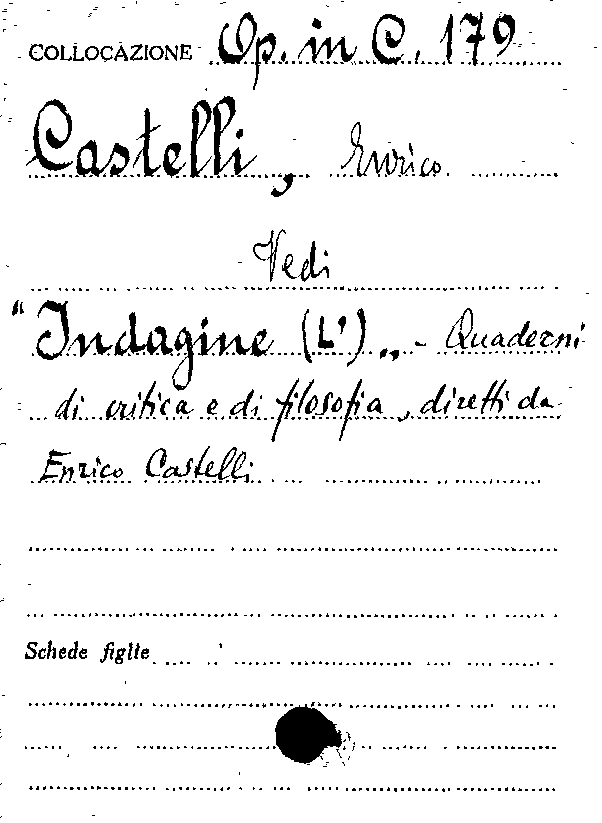 COLLOCAZIONE Op. in C. 179
Castelli, Enrico
Vedi
"Indagine (L')„ - Quaderni
di critica e di filosofia, diretti da
Enrico Castelli
Schede figlie